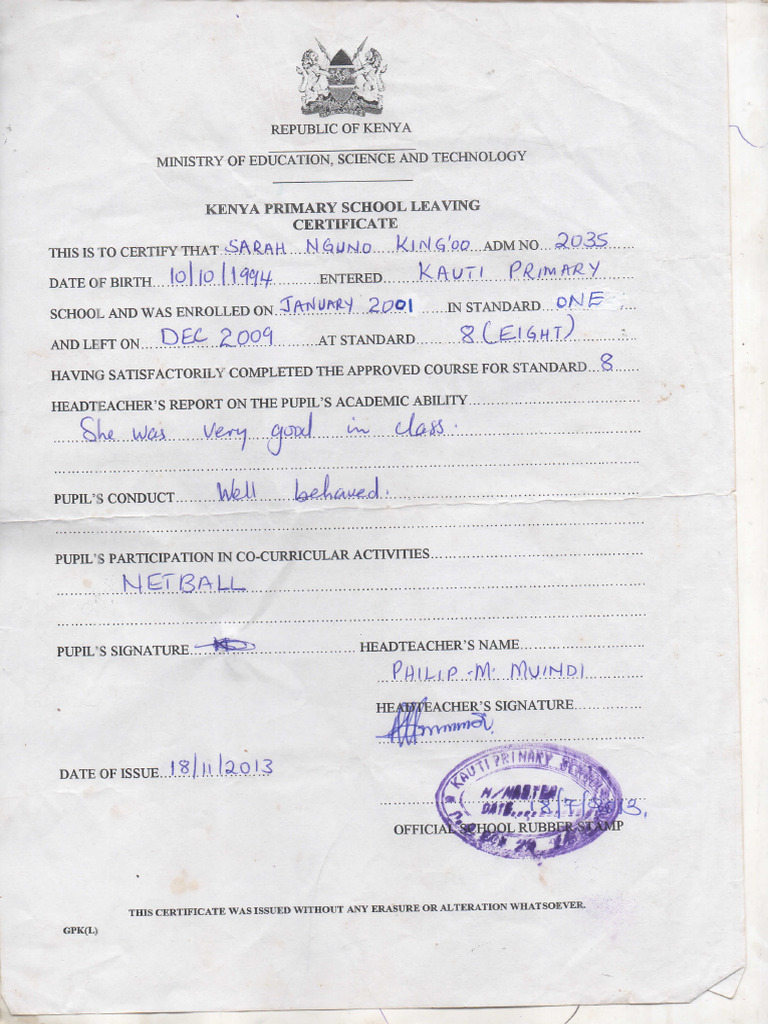 REPUBLIC OF KENYA
MINISTRY OF EDUCATION, SCIENCE AND TECHNOLOGY
KENYA PRIMARY SCHOOL LEAVING
CERTIFICATE
THIS IS TO CERTIFY THAT SARAH NGUNO KING'OO ADM NO 2035
DATE OF BIRTH 10/10/1994 ENTERED KAUTI PRIMARY
SCHOOL AND WAS ENROLLED ON JANUARY 2001 IN STANDARD ONE
AND LEFT ON DEC 2009 AT STANDARD 8 (EIGHT)
HAVING SATISFACTORILY COMPLETED THE APPROVED COURSE FOR STANDARD 8
HEADTEACHER'S REPORT ON THE PUPIL'S ACADEMIC ABILITY
She was very good in class.
PUPIL'S CONDUCT Well behaved.
PUPIL'S PARTICIPATION IN CO-CURRICULAR ACTIVITIES
NETBALL
PUPIL'S SIGNATURE HEADTEACHER'S NAME
PHILIP M. MUINDI
HEADTEACHER'S SIGNATURE
DATE OF ISSUE 18/11/2013
KAUTI PRIMARY SCHOOL
H/MASTER
DATE
OFFICIAL SCHOOL RUBBER STAMP
THIS CERTIFICATE WAS ISSUED WITHOUT ANY ERASURE OR ALTERATION WHATSOEVER.
GPK(L)